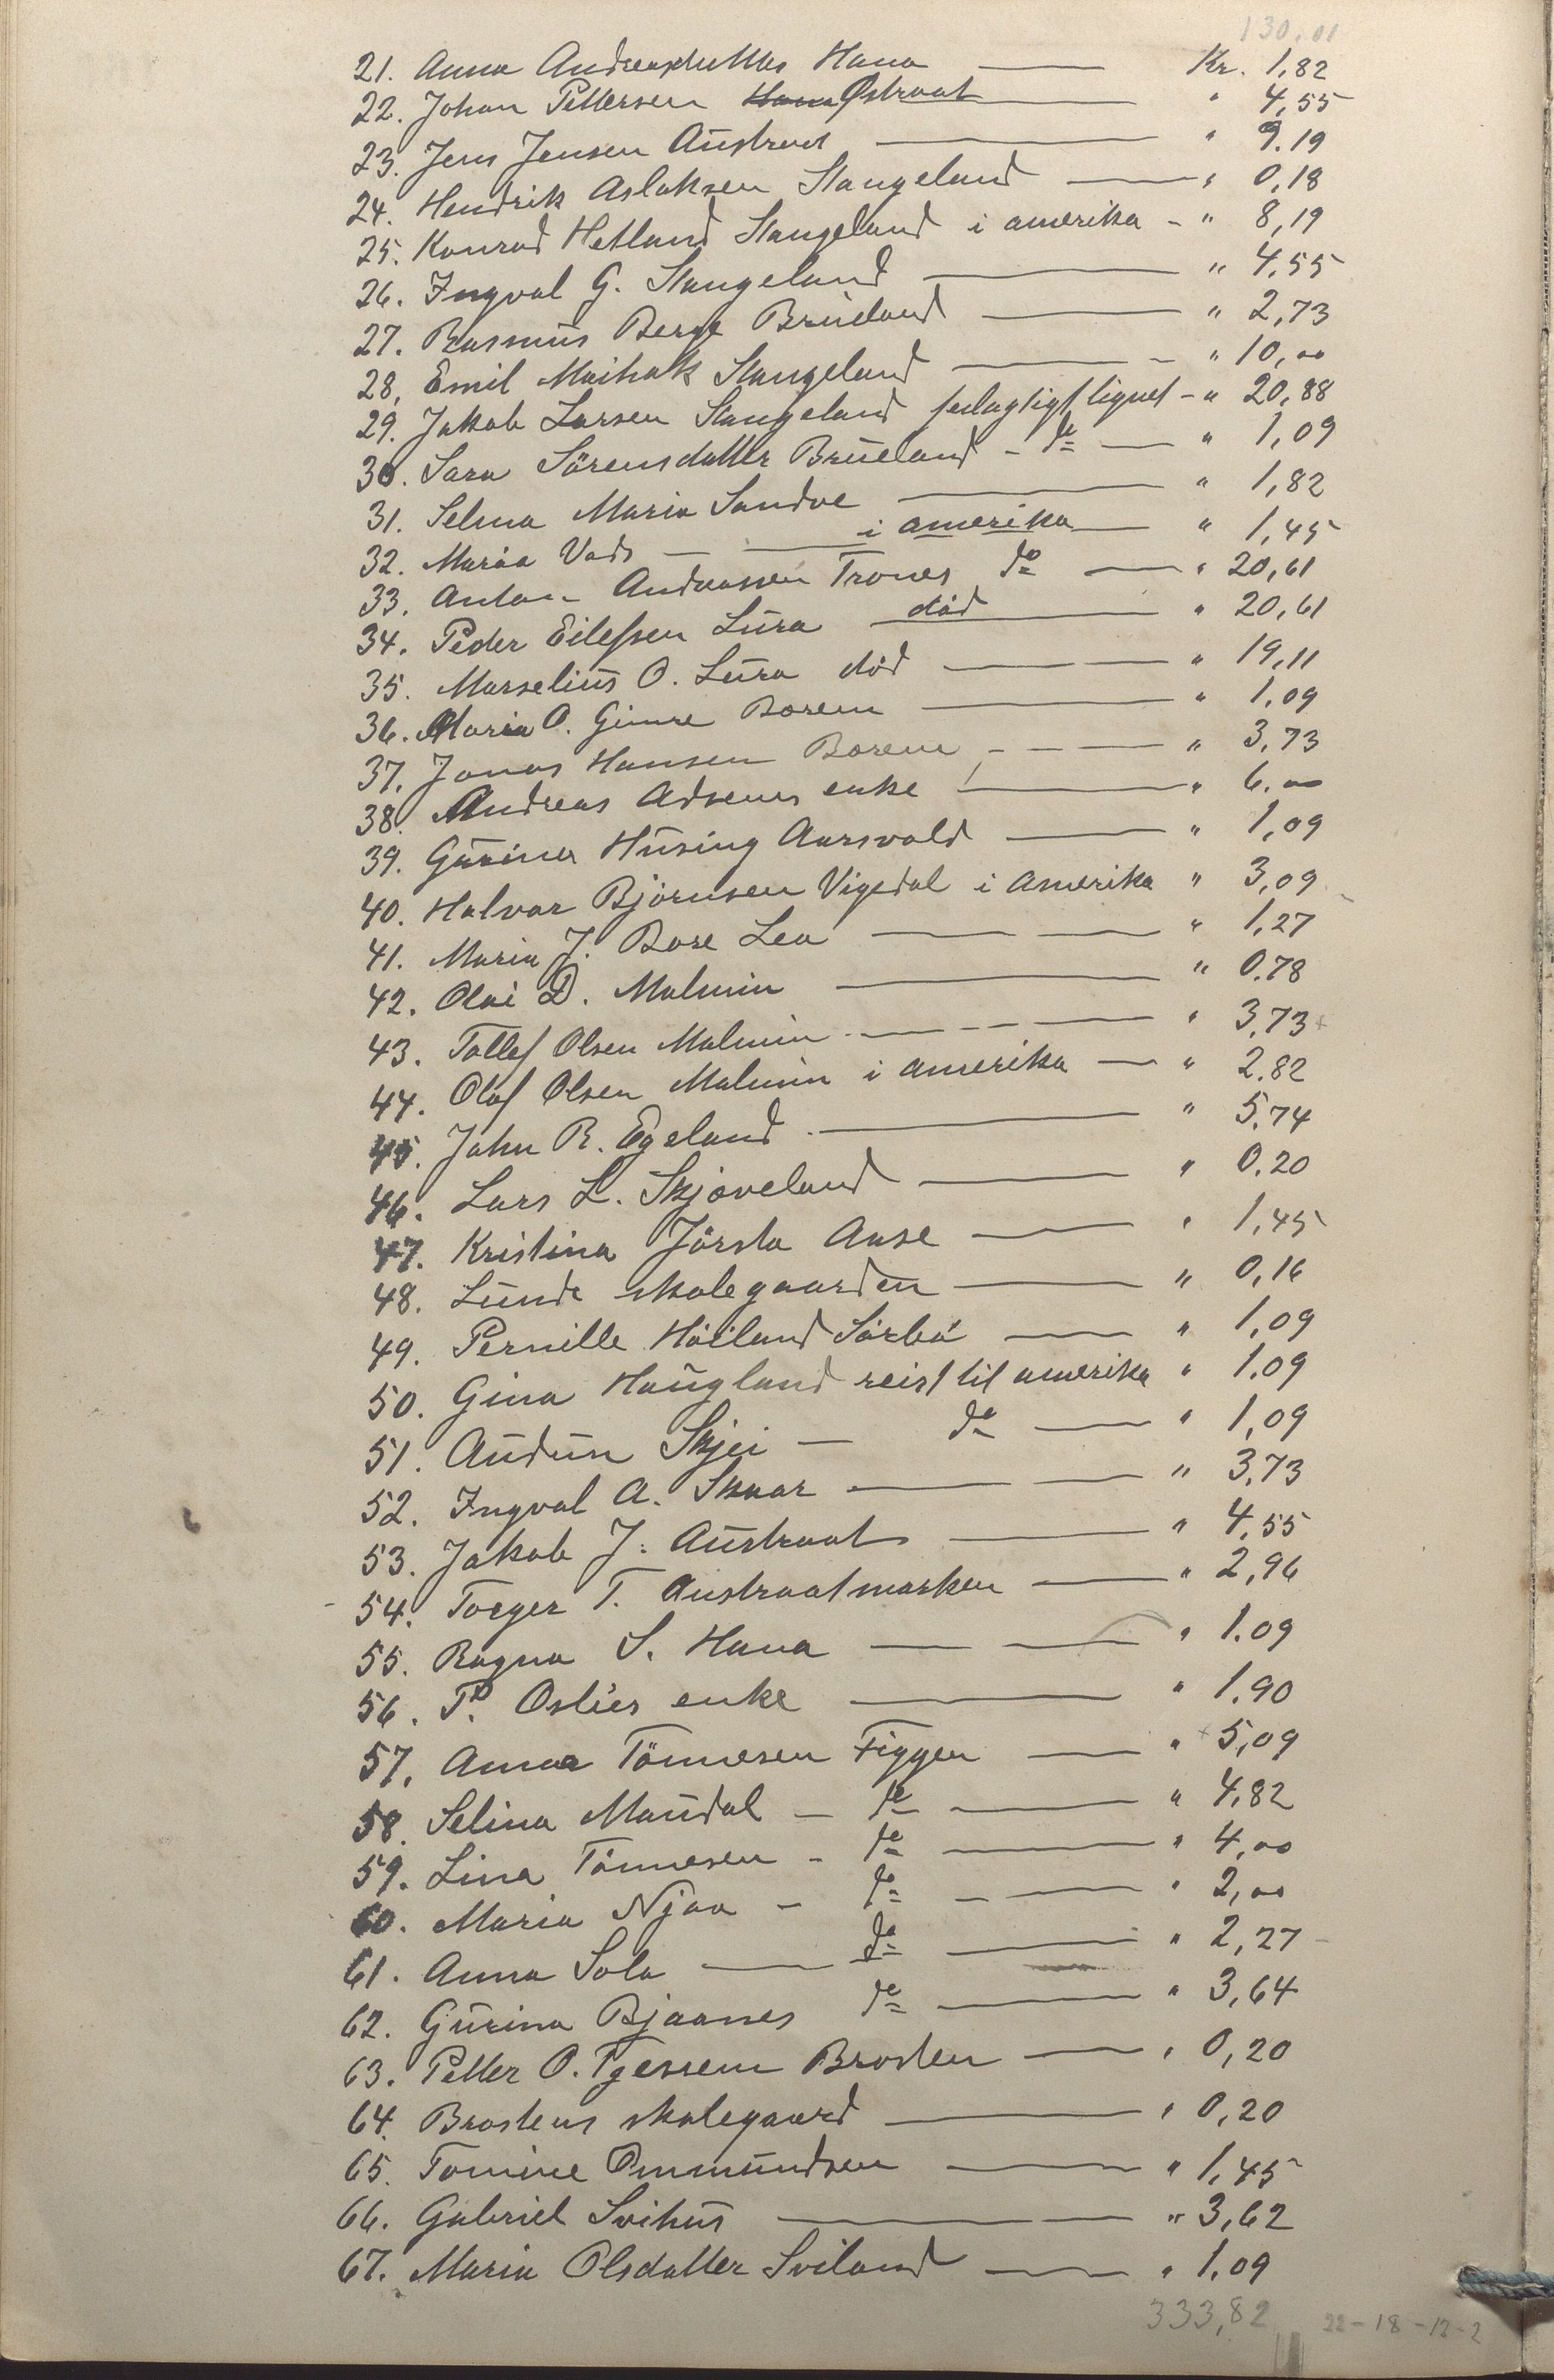 130,01
21. Anna Andreasdatter Hana — Kr. 1,82
22. Johan Pettersen Hana Østraat — " 4,55
23. Jens Jensen Austraat — " 9.19
24. Hendrik Aslaksen Stangeland — " 0,18
25. Konrad Hetland Stangeland i amerika - " 8,19
26. Ingval G. Stangeland — " 4,55
27. Rasmus Berge Brueland — " 2,73
28. Emil Maihak Stangeland — " 10,00
29. Jakob Larsen Stangeland feilagtigt lignet - " 20,88
30. Sara Sörensdatter Brueland - do — " 1,09
31. Selma Maria Sandve — " 1,82
32. Maria Vads — i amerika — " 1,45
33. Anton Andreassen Trones do — " 20,61
34. Peder Eilefsen Lura død — " 20,61
35. Marselius O. Lura död — " 19,11
36. Maria O. Gimre Boren — " 1,09
37. Jonas Hansen Boren — " 3,73
38. Andreas Adsens enke — " 6.00
39. Gurina Husing Aarsvold — " 1,09
40. Halvar Björnsen Vigedal i Amerika " 3,09
41. Maria J. Bore Lea — " 1,27
42. Olai D. Malmin — " 0.78
43. Tollef Olsen Malmin — " 3,73
44. Olaf Olsen Malmin i amerika — " 2.82
45. John R. Egeland — " 5,74
46. Lars L. Skjæveland — " 0.20
47. Kristina Jörsta Aase — " 1,45
48. Lunde skolegaarden — " 0,16
49. Pernille Höiland Sörbö — " 1,09
50. Gina Haugland reist til amerika " 1.09
51. Audun Skjei — do — " 1,09
52. Ingval A. Skaar — " 3,73
53. Jakob J. Austraat — " 4,55
54. Torger T. Austraatmarken — " 2,96
55. Ragna S. Hana — " 1.09
56. P. Oslies enke — " 1.90
57. Anna Tönnesen Figgen — " 5,09
58. Selina Maudal — do — " 4,82
59. Lina Tönnesen - do — " 4,00
60. Maria Njaa - do — " 2,00
61. Anna Sola — do — " 2,27
62. Gurina Bjaanes do — " 3,64
63. Petter O. Tjessem Brosten — " 0,20
64. Brostens skolegaard — " 0,20
65. Tomine Ommundsen — " 1,45
66. Gabriel Svihus — " 3,62
67. Maria Olsdatter Sviland — " 1.09
333,82 22-18-12-2